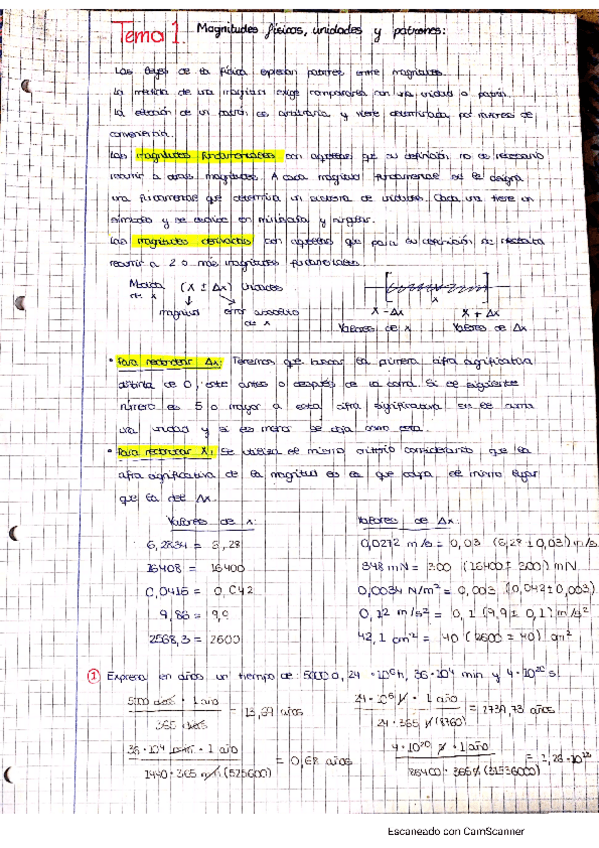 Tema 1. Magnitudes físicas, unidades y patrones:
Las leyes de la física expresan patrones entre magnitudes.
La medida de una magnitud exige compararla con una unidad o patrón.
La elección de un patrón es arbitraria y viene determinada por motivos de
conveniencia.
Las magnitudes fundamentales son aquellas que su definición no es necesario
recurrir a otras magnitudes. A cada magnitud fundamental se le asigna
una fundamental que determina un sistema de unidades. Cada una tiene un
símbolo y se escribe en minúscula y singular.
Las magnitudes derivadas son aquellas que para su definición se necesita
recurrir a 2 o más magnitudes fundamentales.
Medida de x (X ± Δx) Unidades
magnitud error absoluto de x
x
X - Δx X + Δx
Valores de x Valores de Δx
• Para redondear Δx: Tenemos que buscar la primera cifra significativa
distinta de 0, esté antes o después de la coma. Si el siguiente
número es 5 o mayor a esta cifra significativa se le suma
una unidad y si es menor se deja como está.
• Para redondear X: Se utiliza el mismo criterio considerando que la
cifra significativa de la magnitud es la que ocupa el mismo lugar
que la del Δx.
Valores de x: Valores de Δx:
6,2834 = 6,28 0,0272 m/s = 0,03 (6,28 ± 0,03) m/s
16408 = 16400 348 mN = 300 (16400 ± 300) mN
0,0416 = 0,042 0,0034 N/m² = 0,003 (0,042 ± 0,003)
9,86 = 9,9 0,12 m/s² = 0,1 (9,9 ± 0,1) m/s²
2568,3 = 2600 42,1 cm² = 40 (2600 ± 40) cm²
① Expresa en años un tiempo de: 5000, 24 · 10⁶ h, 36 · 10⁴ min y 4 · 10²⁰ s
5000 días · 1 año / 365 días = 13,69 años 24 · 10⁶ h · 1 año / 24 · 365 h (8760) = 2739,73 años
36 · 10⁴ min · 1 año / 1440 · 365 min (525600) = 0,68 años 4 · 10²⁰ s · 1 año / 86400 · 365 s (31536000) = 1,26 · 10¹³
Escaneado con CamScanner